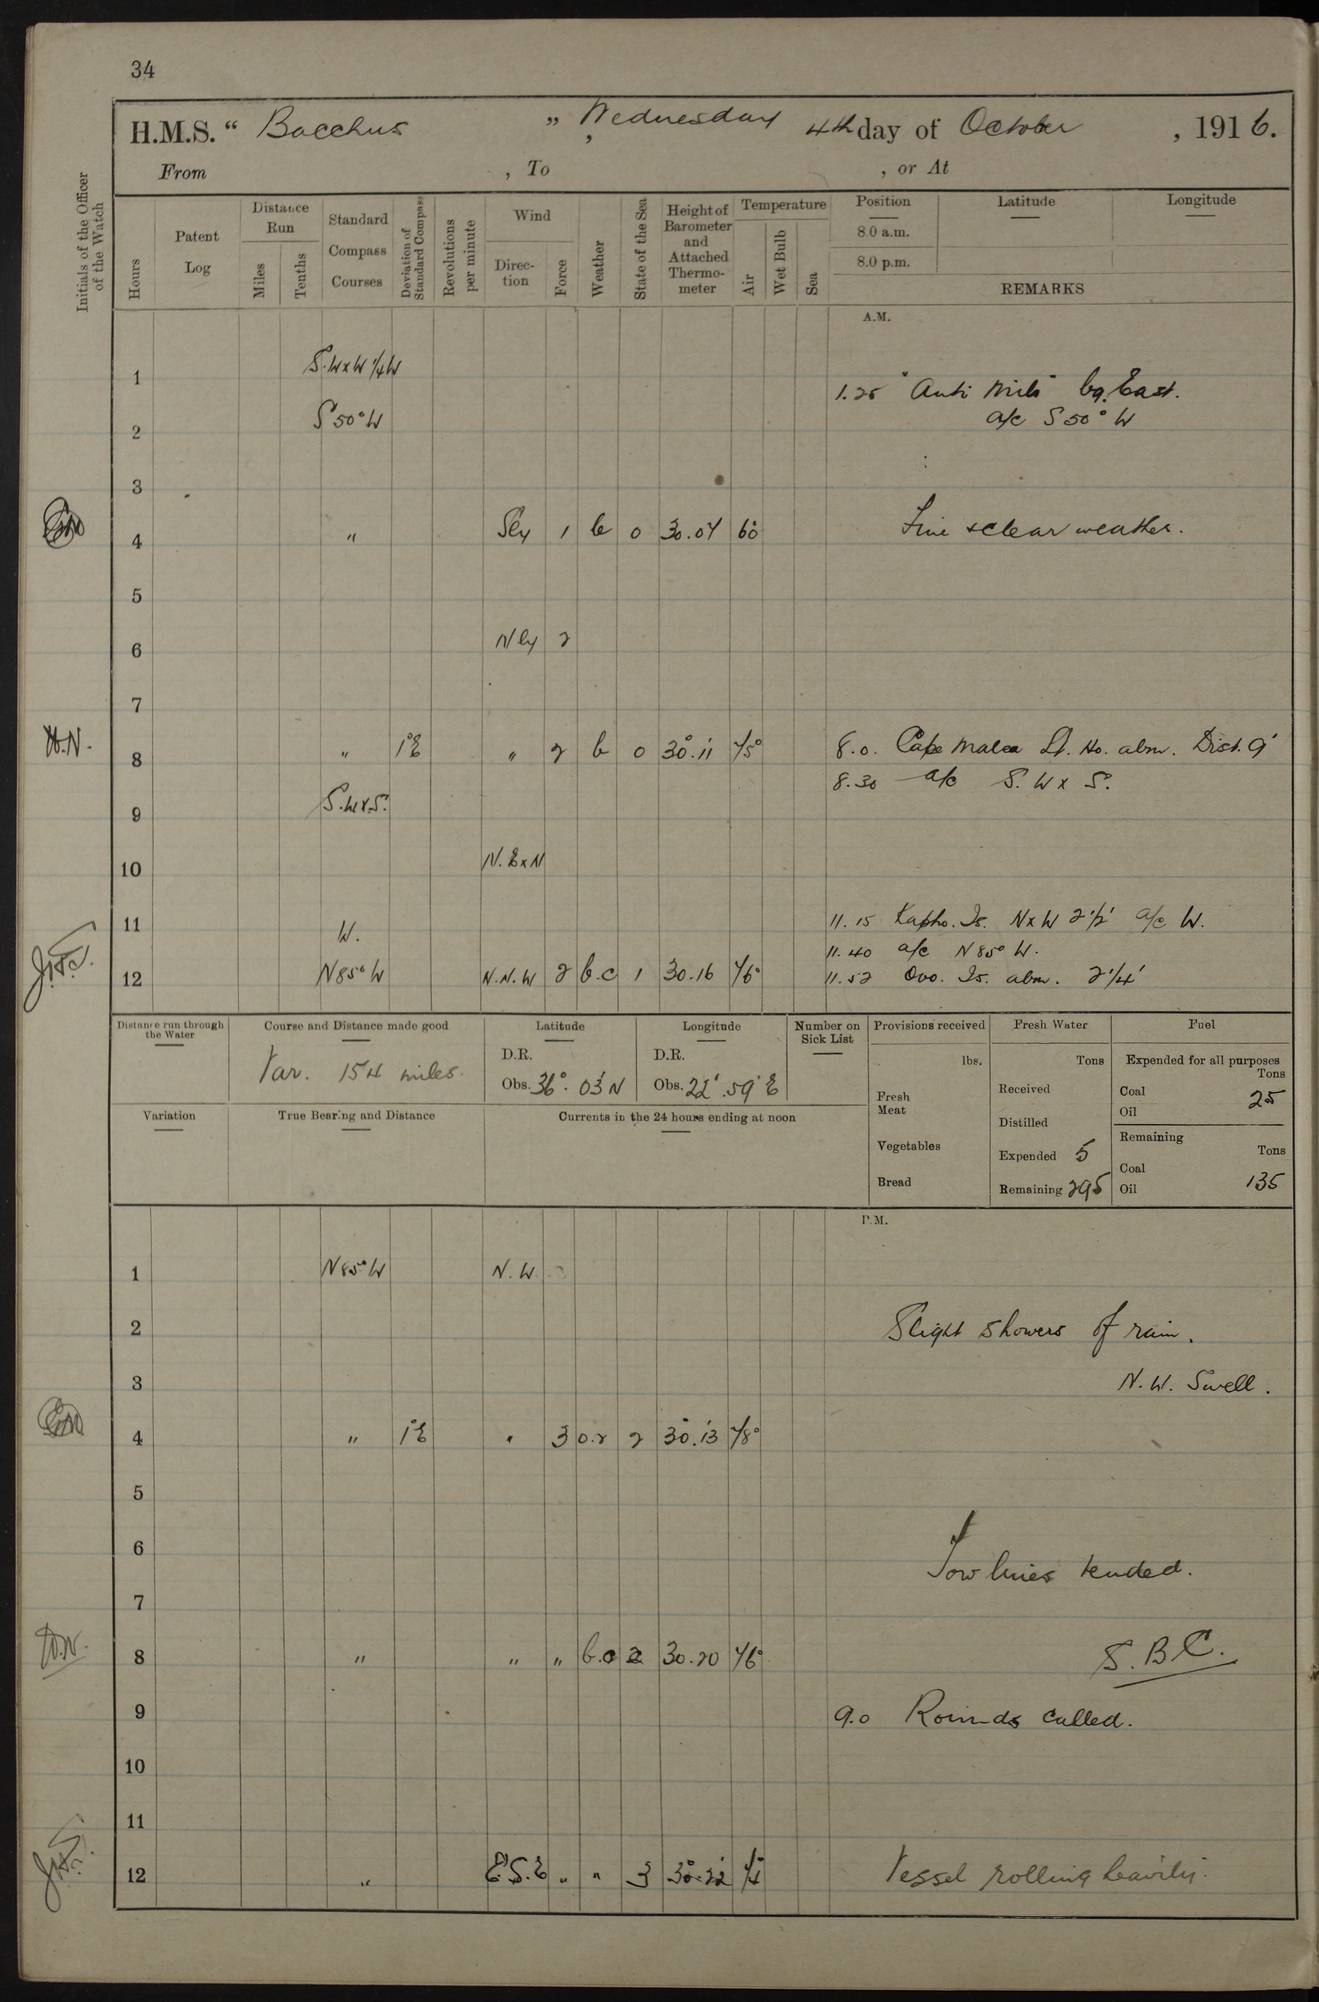 34
H.M.S. “ Bacchus ” , Wednesday 4th day of October , 1916.
From , To , or At
Initials of the Officer of the Watch
Hours
Patent Log
Distance Run
Miles
Tenths
Standard Compass Courses
Deviation of Standard Compass
Revolutions per minute
Wind
Direction
Force
Weather
State of the Sea
Height of Barometer and Attached Thermometer
Temperature
Air
Wet Bulb
Sea
Position
8.0 a.m.
8.0 p.m.
Latitude
Longitude
REMARKS
A.M.
1 S.WxW¼W
1.25 "Anti Milo" bg. East.
2 S50°W
a/c S50°W
3
4 " Sly 1 b 0 30.07 60 Fine & clear weather.
5
6 Nly 2
7
H.N. 8 " 1°E " 2 b 0 30.11 75° 8.0. Cape Malea Lt. Ho. abm. Dist. 9'
8.30 a/c S.WxS.
9 S.WxS.
10 N.ExN
11 W. 11.15 Kapho. Is. NxW 2½' a/c W.
11.40 a/c N85°W.
12 N85°W N.N.W 2 b.c 1 30.16 76° 11.52 Ovo. Is. abm. 2¼'
Distance run through the Water
Course and Distance made good
Var. 154 miles.
Latitude
D.R.
Obs. 36°.03'N
Longitude
D.R.
Obs. 22°.59'E
Number on Sick List
Provisions received
lbs.
Fresh Meat
Vegetables
Bread
Fresh Water
Tons
Received
Distilled
Expended 5
Remaining 295
Fuel
Expended for all purposes
Tons
Coal
Oil 25
Remaining
Tons
Coal
Oil 135
Variation
True Bearing and Distance
Currents in the 24 hours ending at noon
P.M.
1 N85°W N.W.
2 Slight showers of rain.
3 N.W. Swell.
4 " 1°E " 3 o.r 2 30.13 78°
5
6
Tow lines tended.
7
H.N. 8 " " " b.c 2 30.20 76° S.B.C.
9 9.0 Rounds called.
10
11
12 " E.S.E " " 3 30.22 74 Vessel rolling heavily.